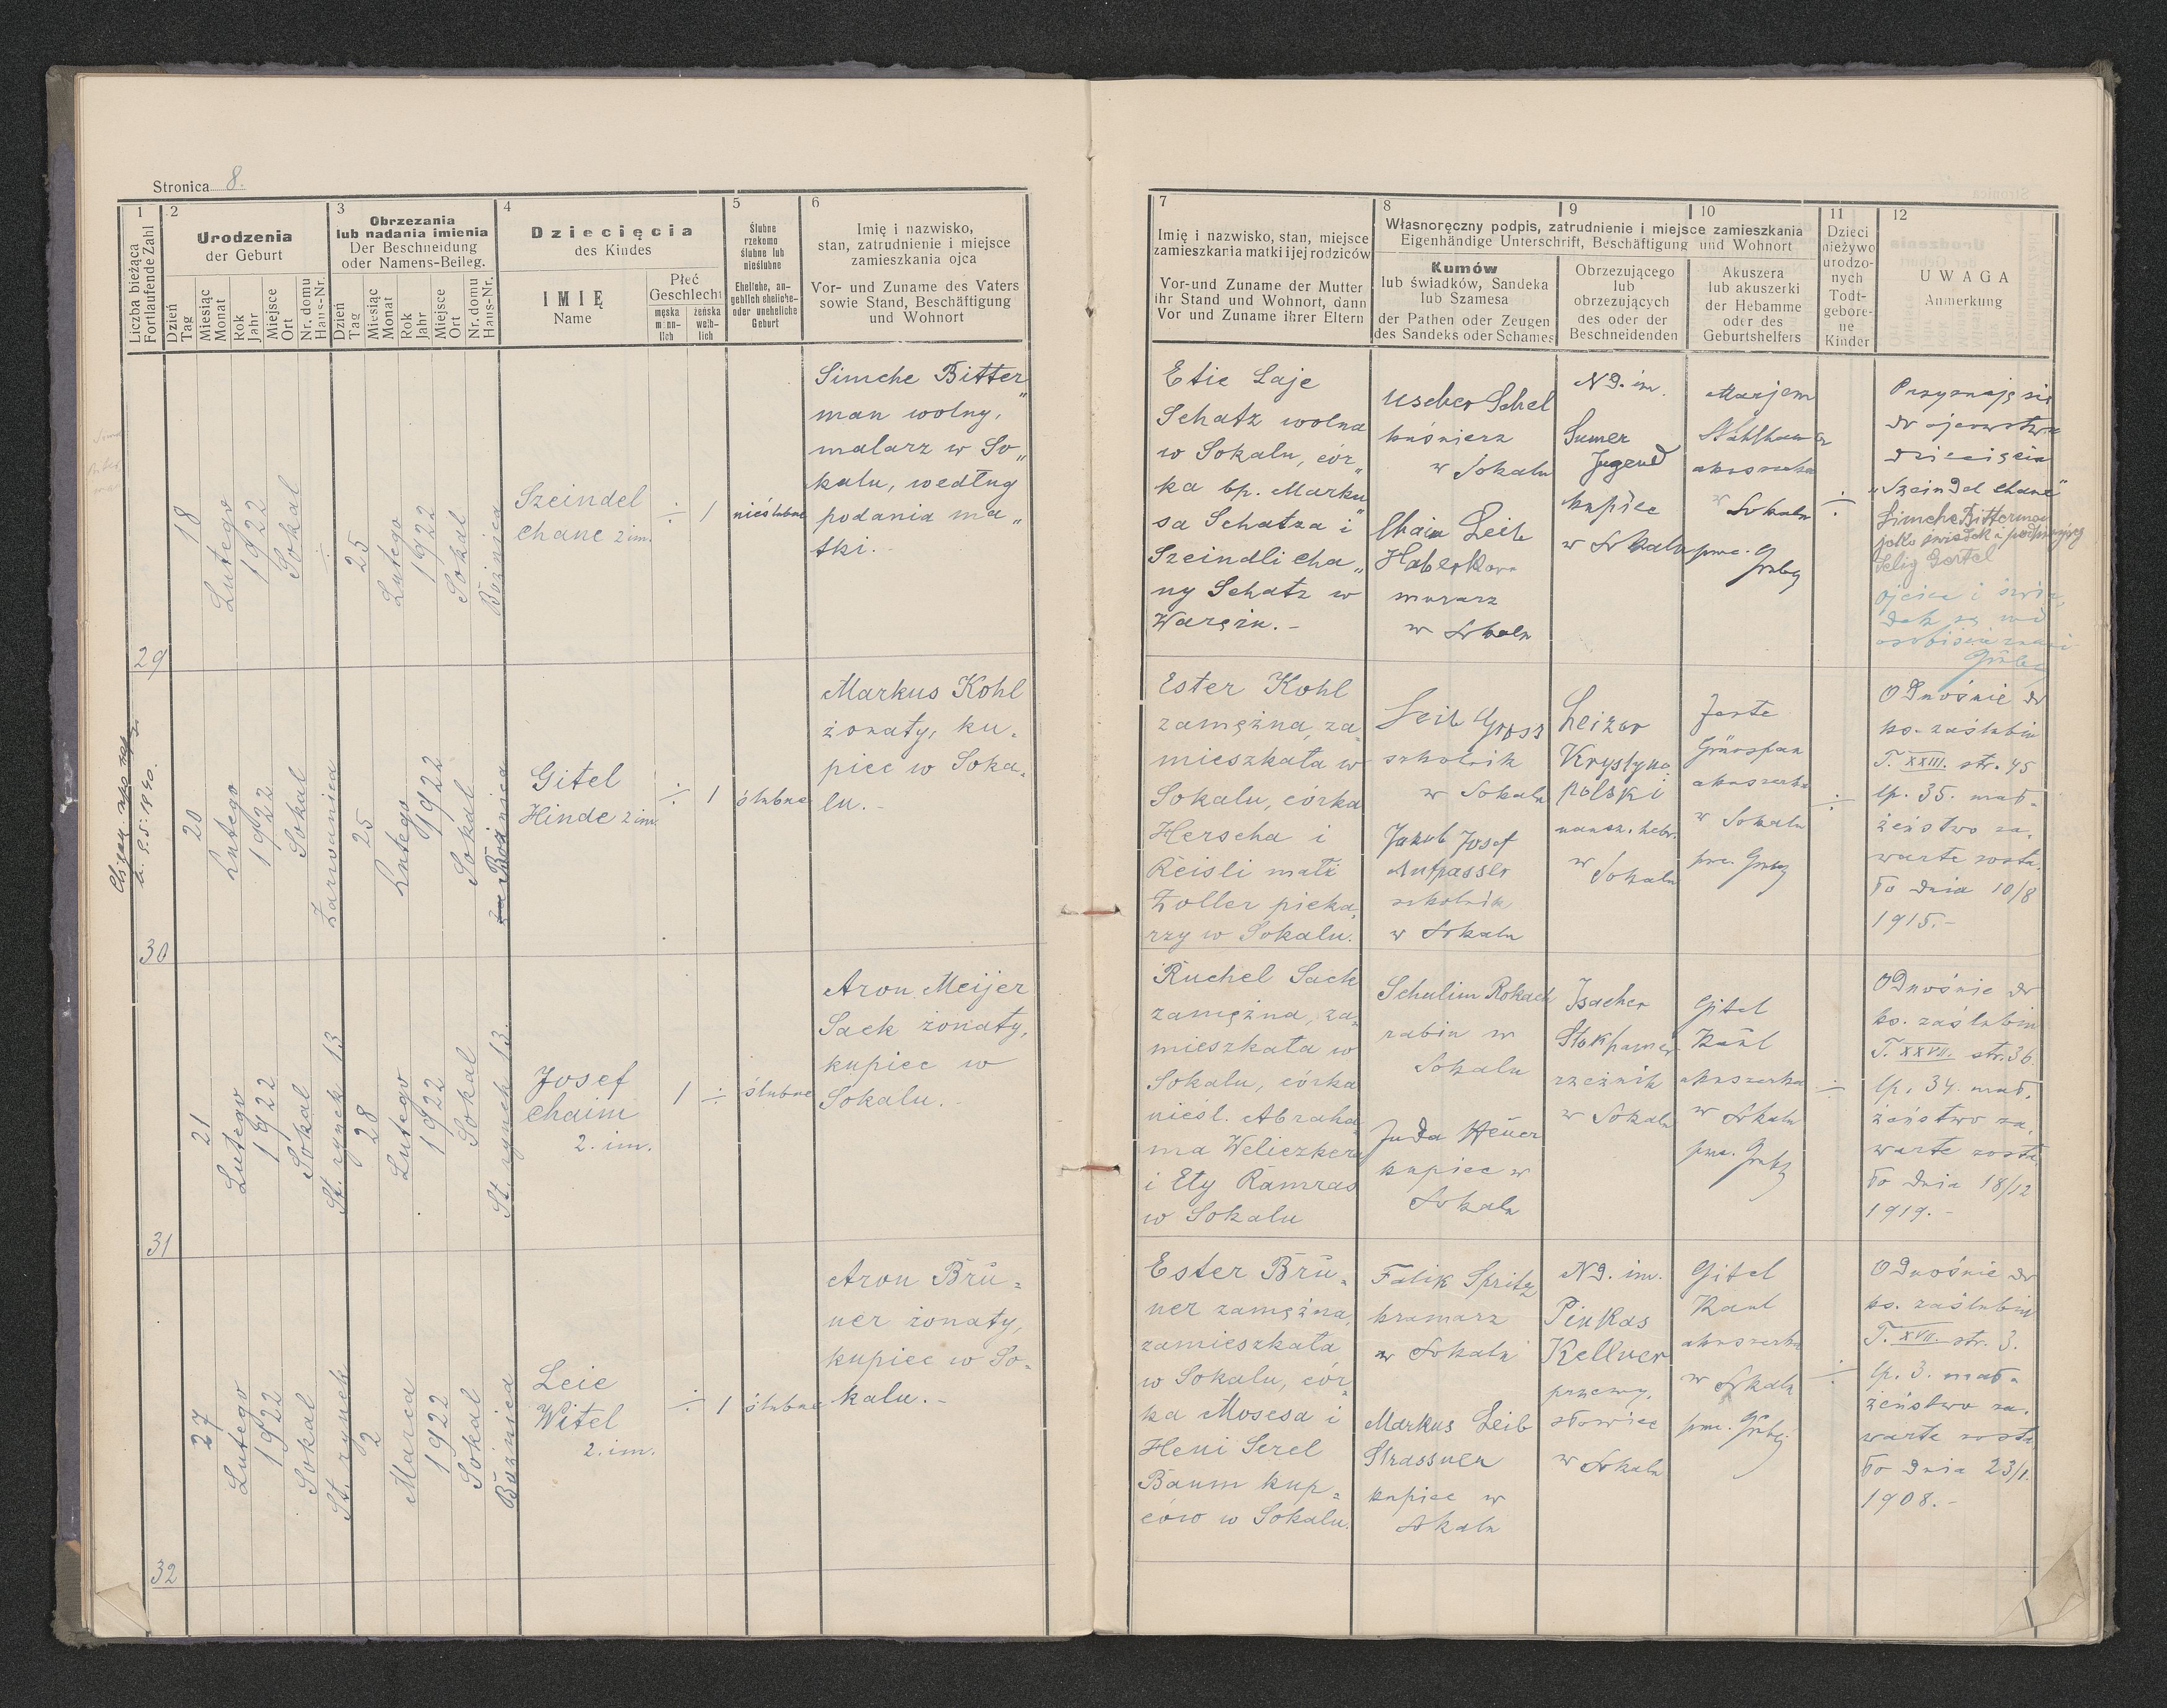 Stronica 8.
1
Liczba bieżąca
Fortlaufende Zahl
2
Urodzenia
der Geburt
Dzień
Tag
Miesiąc
Monat
Rok
Jahr
Miejsce
Ort
Nr. domu
Haus-Nr.
3
Obrzezania
lub nadania imienia
Der Beschneidung
oder Namens-Beileg.
Dzień
Tag
Miesiąc
Monat
Rok
Jahr
Miejsce
Ort
Nr. domu
Haus-Nr.
4
Dziecięcia
des Kindes
IMIĘ
Name
Płeć
Geschlecht
męska
männ-
lich
żeńska
weib-
lich
5
Ślubne
rzekomo
ślubne lub
nieślubne
Eheliche, an-
geblich eheliche-
oder uneheliche
Geburt
6
Imię i nazwisko,
stan, zatrudnienie i miejsce
zamieszkania ojca
Vor- und Zuname des Vaters
sowie Stand, Beschäftigung
und Wohnort
7
Imię i nazwisko, stan, miejsce
zamieszkania matki i jej rodziców
Vor-und Zuname der Mutter
ihr Stand und Wohnort, dann
Vor und Zuname ihrer Eltern
8
9
10
Własnoręczny podpis, zatrudnienie i miejsce zamieszkania
Eigenhändige Unterschrift, Beschäftigung und Wohnort
Kumów
lub świadków, Sandeka
lub Szamesa
der Pathen oder Zeugen
des Sandeks oder Schames
Obrzezującego
lub
obrzezujących
des oder der
Beschneidenden
Akuszera
lub akuszerki
der Hebamme
oder des
Geburtshelfers
11
Dzieci
nieżywo
urodzo-
nych
Todt-
gebore-
ne
Kinder
12
UWAGA
Anmerkung
29
18
Lutego
1922
Sokal
÷
25
Lutego
1922
Sokal
Bożnica
Szeindel
Chane 2 im.
÷
1
nieślubne
Simche Bitter„
man wolny,
malarz w So„
kalu, według
podania ma„
tki.
Etie Laje
Schatz wolna
w Sokalu, cór„
ka bp. Marku„
sa Schatza i
Szeindli Cha„
ny Schatz w
Waręzu. -
Uscher Schel
kuśnierz
w Sokalu
Chaim Leib
Haberkorn
murarz
w Sokalu
ND. im.
Sumer
Jugend
kupiec
w Sokalu
Marjem
akuszerka
w Sokalu
÷
Przyznaję się
do ojcowstwa
dziecięcia
„Szeindel Chane"
Simche Bitterman
jako świadek i podpisujący
Selig Gertel
ojciec i świa„
dek są mi
osobiście znani
30
20
Lutego
1922
Sokal
Zarwanica
25
Lutego
1922
Sokal
Bożnica
Gitel
Hinde 2 im.
÷
1
ślubne
Markus Kohl
żonaty, ku„
piec w Soka„
lu. -
Ester Kohl
zamężna, za„
mieszkała w
Sokalu, córka
Herscha i
Reisli małż
Zoller pieka„
rzy w Sokalu.
Leib Gross
szkolnik
w Sokalu
Jakub Josef
Aufpasser
szkolnik
w Sokalu
Leizor
Krystyno„
polski
naucz. hebr.
w Sokalu
Jente
Grünspan
akuszerka
w Sokalu
÷
Odnośnie do
ks. zaślubin
T. XXIII. str. 45
lp. 35. mał-
żeństwo za„
warte zosta„
ło dnia 10/8
1915. -
31
21
Lutego
1922
Sokal
St. rynek 13
28
Lutego
1922
Sokal
St. rynek 13.
Josef
Chaim
2. im.
1
÷
ślubne
Aron Meijer
Sack żonaty,
kupiec w
Sokalu. -
Ruchel Sack
zamężna, za„
mieszkała w
Sokalu, córka
nieśl. Abraha„
ma Weliczkera
i Ety Ramras
w Sokalu
Schulim Rokach
rabin w
Sokalu
Juda Heuer
kupiec w
Sokalu
Isacher
rzeźnik
w Sokalu
Gitel
akuszerka
w Sokalu
÷
Odnośnie do
ks. zaślubin
T. XXVII. str. 36.
lp. 34. mał-
żeństwo za„
warte zosta„
ło dnia 18/12
1919. -
32
27
Lutego
1922
Sokal
St. rynek
2
Marca
1922
Sokal
Bożnica
Leie
Witel
2. im.
÷
1
ślubne
Aron Brü„
ner żonaty,
kupiec w So„
kalu. -
Ester Brü„
ner zamężna,
zamieszkała
w Sokalu, cór„
ka Mosesa i
Heni Serel
Baum kup„
ców w Sokalu.
Falik Spritz
kramarz
w Sokalu
Markus Leib
Strassner
kupiec w
Sokalu
ND. im.
Pinkas
Kellner
przemy„
słowiec
w Sokalu
Gitel
akuszerka
w Sokalu
÷
Odnośnie do
ks. zaślubin
T. XVII. str. 3.
lp. 3. mał-
żeństwo za„
warte zosta„
ło dnia 23/1.
1908. -